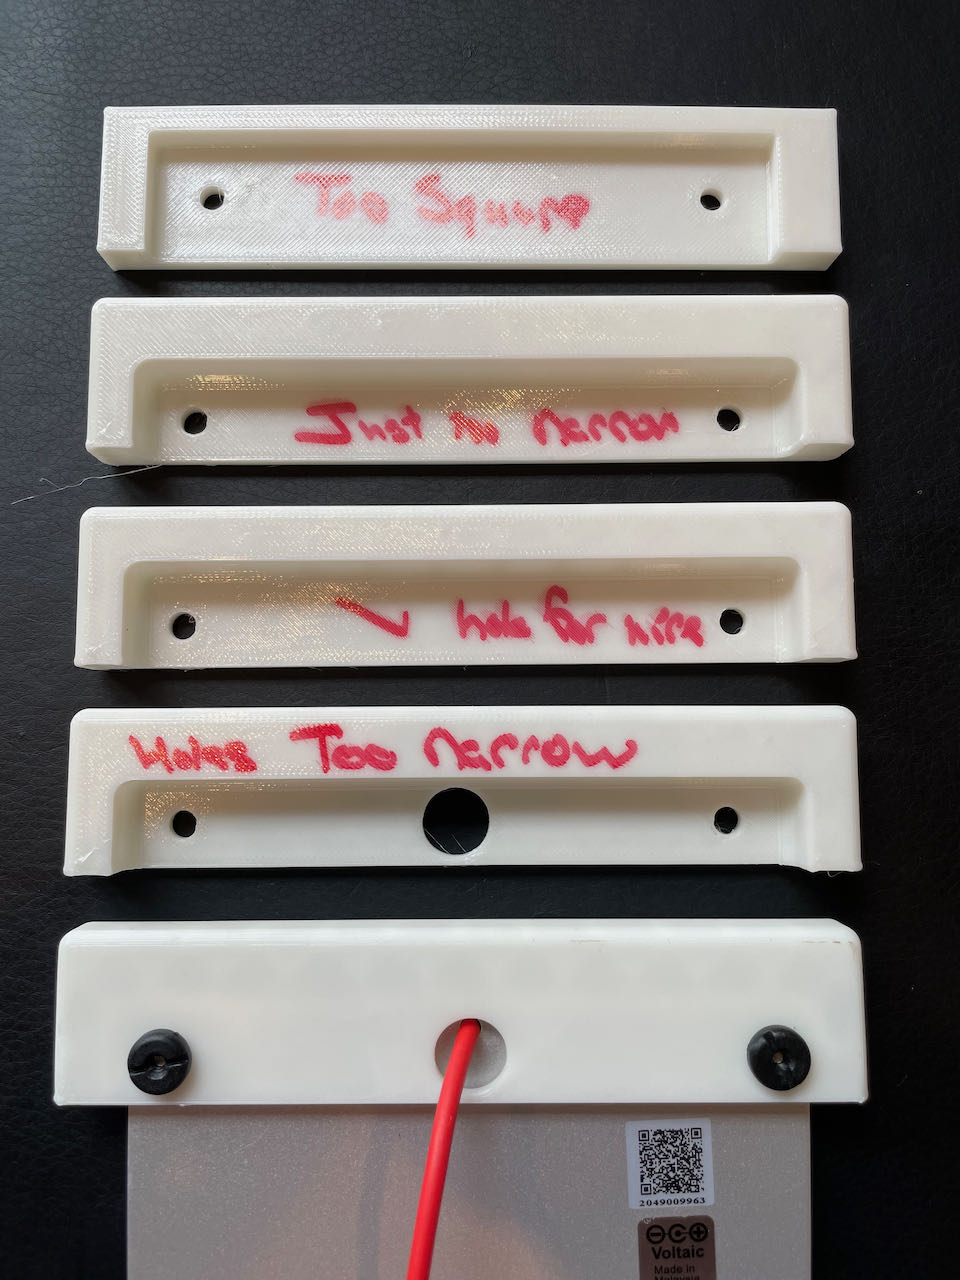 Too Square
Just too narrow
✓ hole for wire
Holes Too narrow
2049009963
Voltaic
Made in
Malaysia